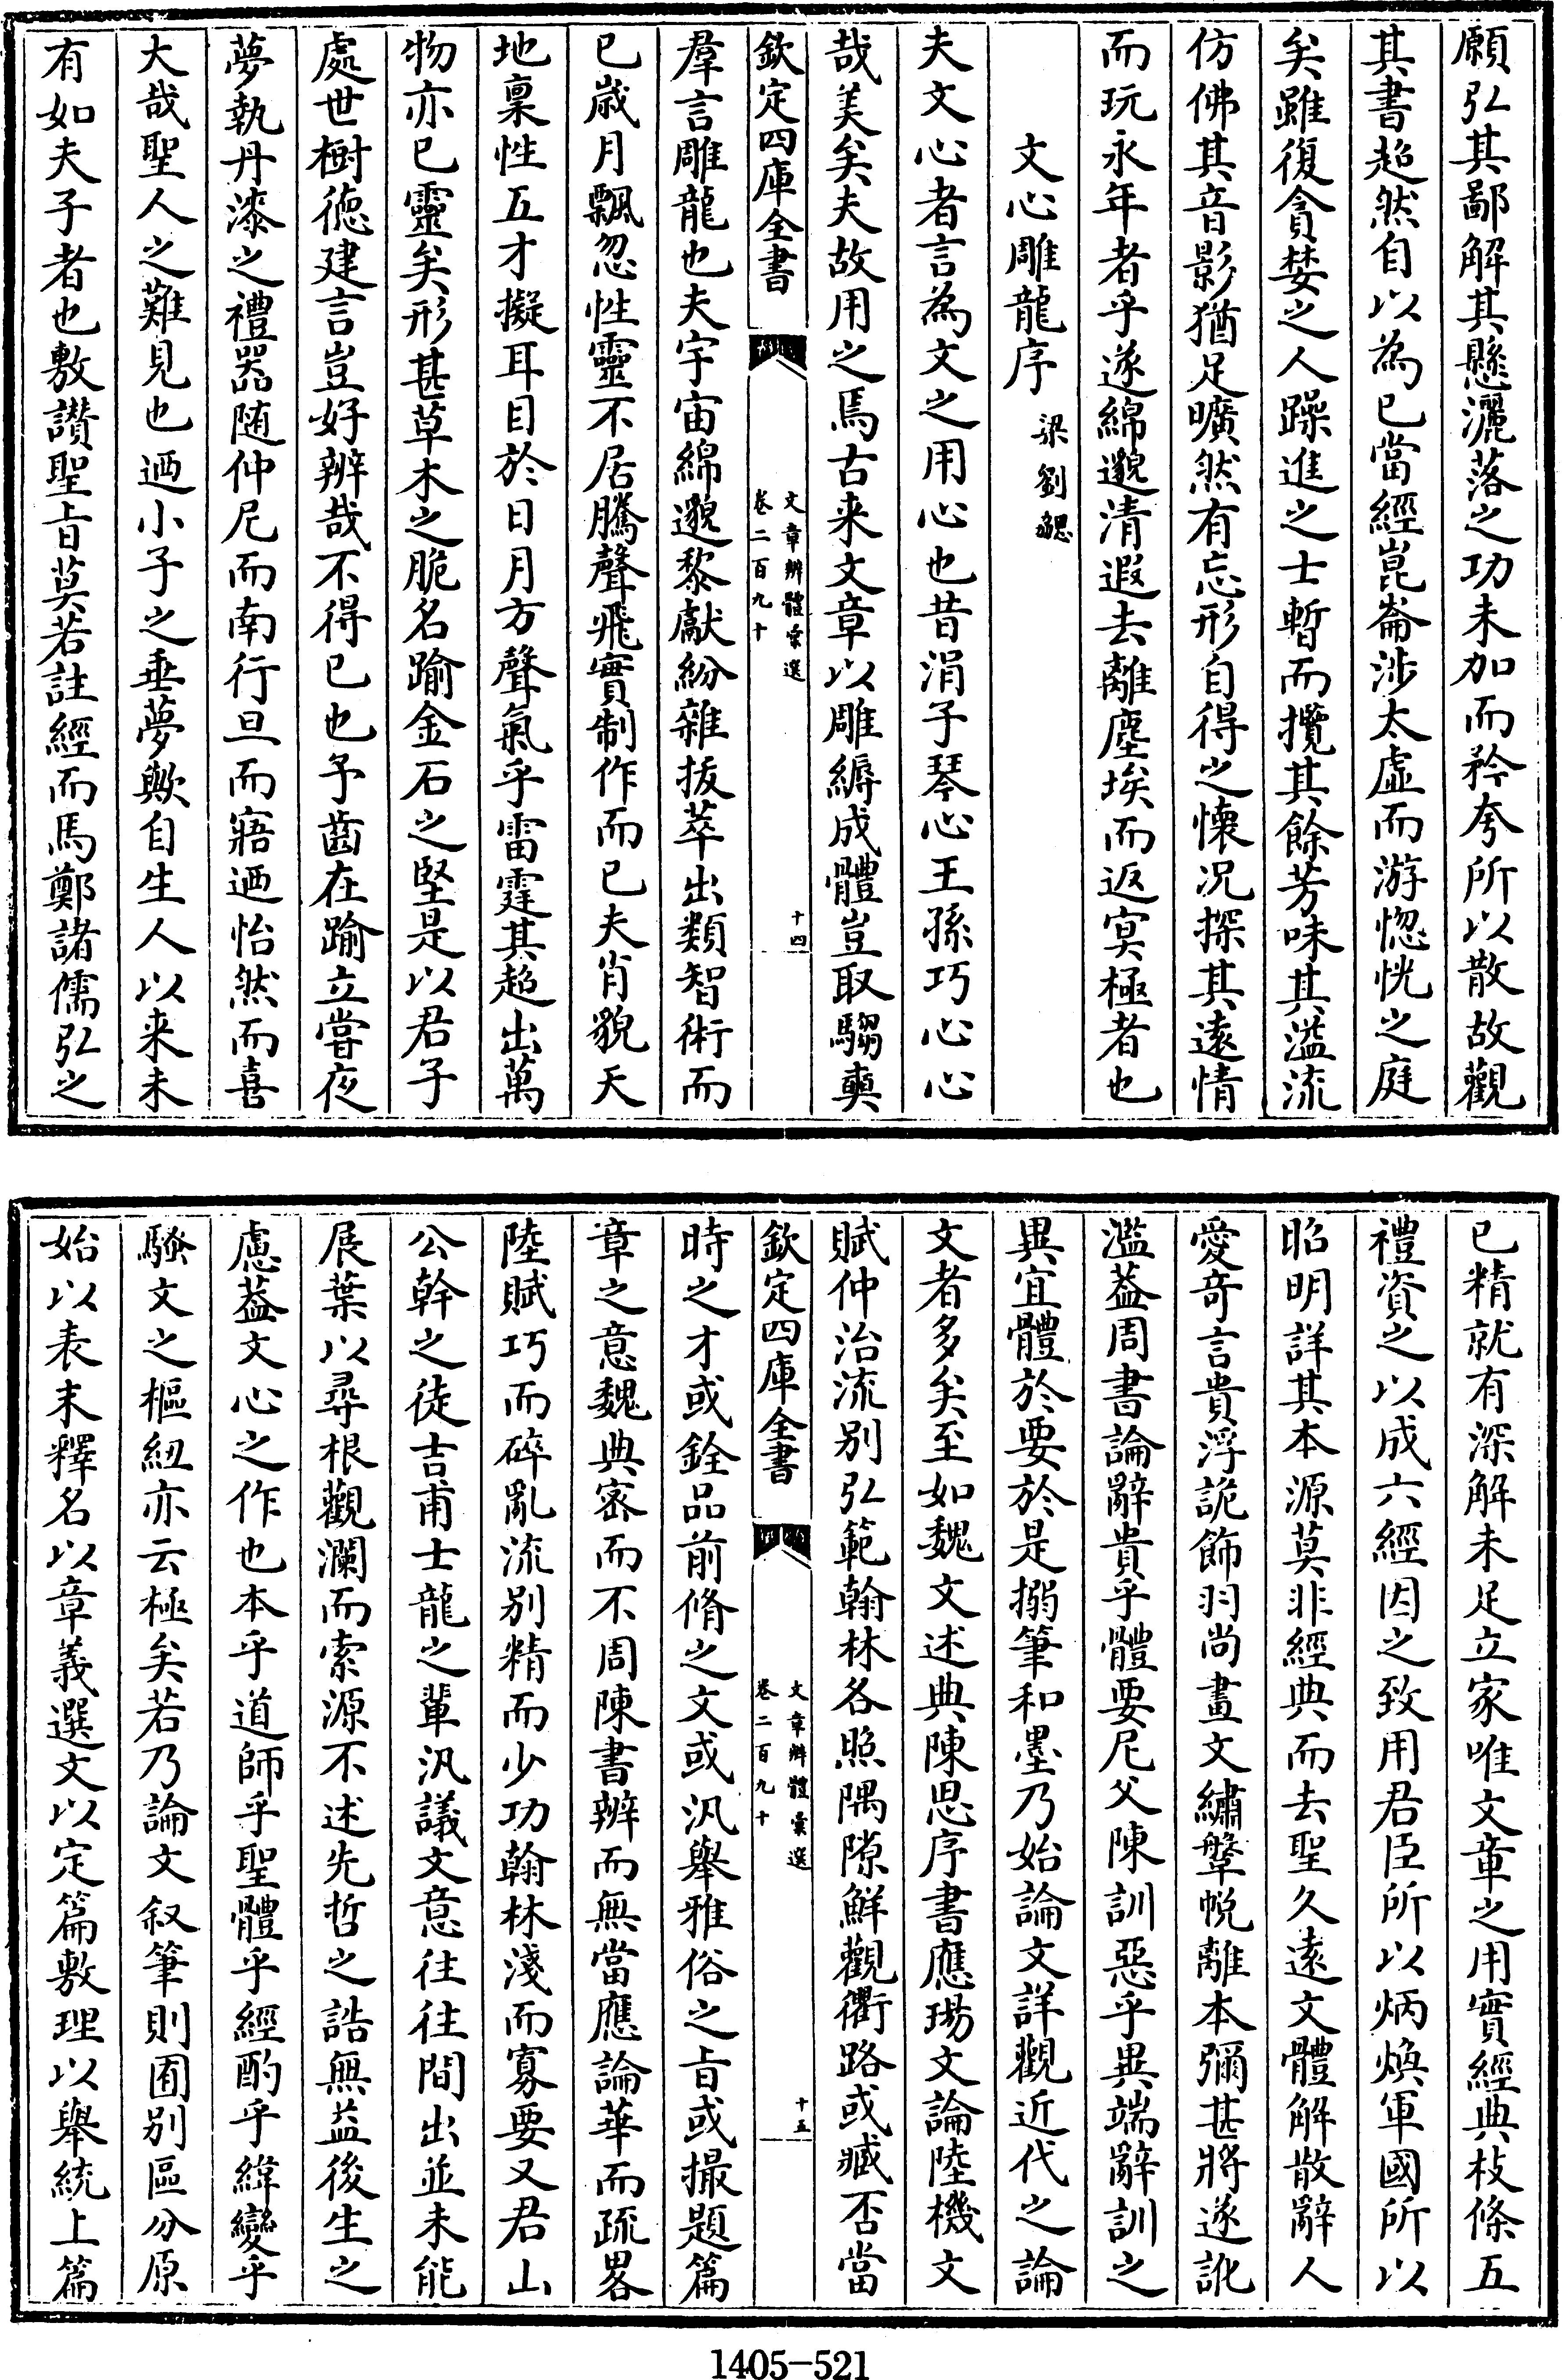 願弘其鄙解其懸灑落之功未加而矜夸所以散故觀
其書超然自以為已當經崑崙涉太虛而游惚恍之庭
矣雖復貪婪之人躁進之士暫而攬其餘芳味其溢流
仿佛其音影猶足曠然有忘形自得之懷況探其遠情
而玩永年者乎遂綿邈清遐去離塵埃而返冥極者也
文心雕龍序 梁劉勰
夫文心者言為文之用心也昔涓子琴心王孫巧心心
哉美矣夫故用之焉古来文章以雕縟成體豈取騶奭
欽定四庫全書 文章辨體彙選 卷二百九十 十四
羣言雕龍也夫宇宙綿邈黎獻紛雜拔萃出類智術而
已歲月飄忽性靈不居騰聲飛實制作而已夫肖貌天
地稟性五才擬耳目於日月方聲氣乎雷霆其超出萬
物亦已靈矣形甚草木之脆名踰金石之堅是以君子
處世樹徳建言豈好辨哉不得已也予齒在踰立嘗夜
夢執丹漆之禮器随仲尼而南行旦而寤迺怡然而喜
大哉聖人之難見也迺小子之垂夢歟自生人以来未
有如夫子者也敷讃聖㫖莫若註經而馬鄭諸儒弘之
已精就有深解未足立家唯文章之用實經典枝條五
禮資之以成六經因之致用君臣所以炳煥軍國所以
昭明詳其本源莫非經典而去聖久遠文體解散辭人
愛奇言貴浮詭飾羽尚畫文繡鞶帨離本彌甚將遂訛
濫葢周書論辭貴乎體要尼父陳訓惡乎異端辭訓之
異宜體於要於是搦筆和墨乃始論文詳觀近代之論
文者多矣至如魏文述典陳思序書應瑒文論陸機文
賦仲治流别弘範翰林各照隅隙鮮觀衢路或臧否當
欽定四庫全書 文章辨體彙選 卷二百九十 十五
時之才或銓品前脩之文或汎舉雅俗之㫖或撮題篇
章之意魏典宻而不周陳書辨而無當應論華而疏畧
陸賦巧而碎亂流别精而少功翰林淺而寡要又君山
公幹之徒吉甫士龍之輩汎議文意往往間出並未能
展葉以尋根觀瀾而索源不述先哲之誥無益後生之
慮葢文心之作也本乎道師乎聖體乎經酌乎緯變乎
騷文之樞紐亦云極矣若乃論文叙筆則囿别區分原
始以表末釋名以章義選文以定篇敷理以舉統上篇
1405-521